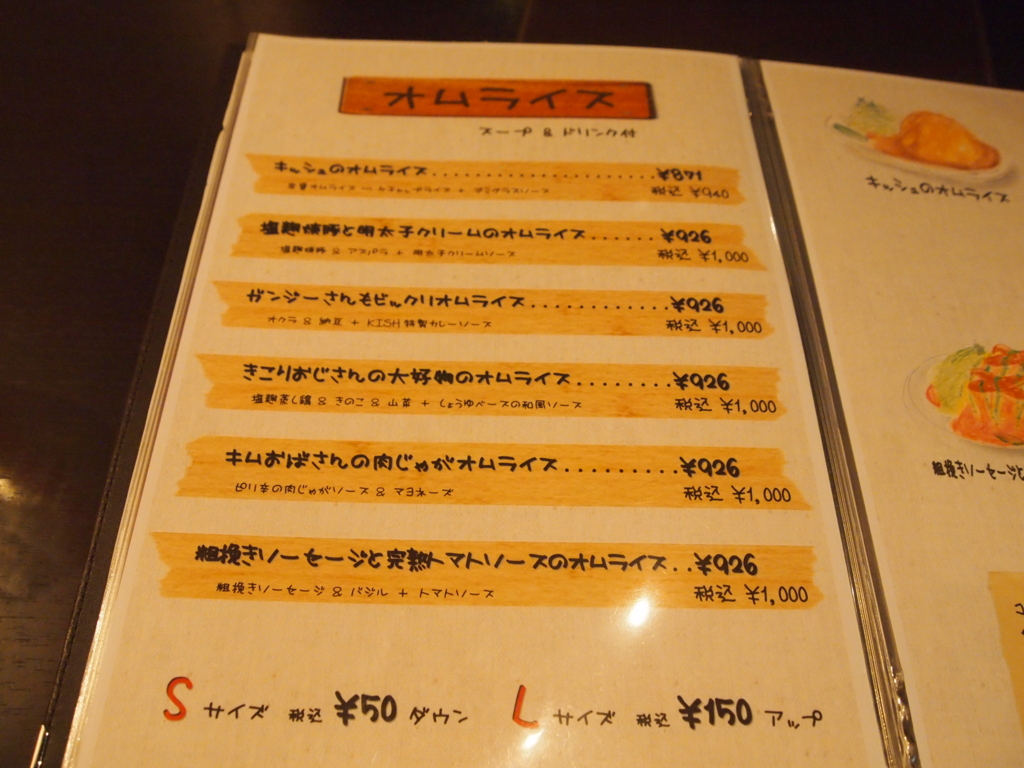 オムライス
スープ & ドリンク付
キッシュのオムライス......................¥871
税込 ¥940
塩麹豚と明太子クリームのオムライス......¥926
税込 ¥1,000
ガンジーさんもビックリオムライス............¥926
オクラ & 納豆 + KISH特製カレーソース 税込 ¥1,000
きこりおじさんの大好物のオムライス........¥926
塩麹蒸し鶏 & きのこ & 山菜 + しょうゆベースの和風ソース 税込 ¥1,000
キムおばさんの肉じゃがオムライス.........¥926
ピリ辛の肉じゃがソース & マヨネーズ 税込 ¥1,000
粗挽きソーセージと完熟トマトソースのオムライス..¥926
粗挽きソーセージ & バジル + トマトソース 税込 ¥1,000
S サイズ 税込 ¥50 ダウン L サイズ 税込 ¥150 アップ
キッシュのオムライス
粗挽きソーセージ